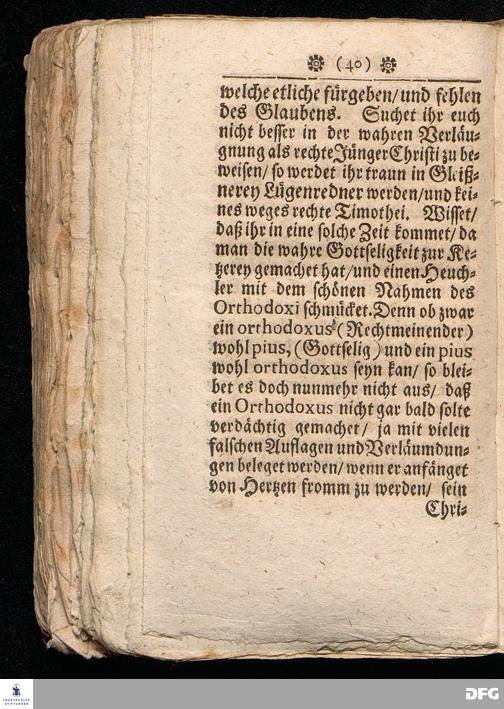 (40)
welche etliche fürgeben/und fehlen
des Glaubens. Suchet ihr euch
nicht besser in der wahren Verläu-
gnung als rechte Jünger Christi zu be-
weisen/ so werdet ihr traun in Gleiß-
nerey Lügenredner werden/und kei-
nes weges rechte Timothei. Wisset/
daß ihr in eine solche Zeit kommet/ da
man die wahre Gottseligkeit zur Ke-
tzerey gemachet hat/und einen Heuch-
ler mit dem schönen Nahmen des
Orthodoxi schmücket. Denn ob zwar
ein orthodoxus (Rechtmeinender)
wohl pius, (Gottselig) und ein pius
wohl orthodoxus seyn kan/ so blei-
bet es doch nunmehr nicht aus/ daß
ein Orthodoxus nicht gar bald solte
verdächtig gemachet/ ja mit vielen
falschen Auflagen und Verläumdun-
gen beleget werden/ wenn er anfänget
von Hertzen fromm zu werden/ sein
Chri-
FRANCKESCHE
STIFTUNGEN
DFG